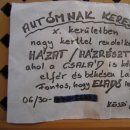 AUTÓMNAK KERE
X. kerületben
nagy kerttel rendelke
HÁZAT / HÁZRÉSZT
ahol a CSALÁD is
elfér és békésen
Fontos, hogy ELADÓ
06/30-